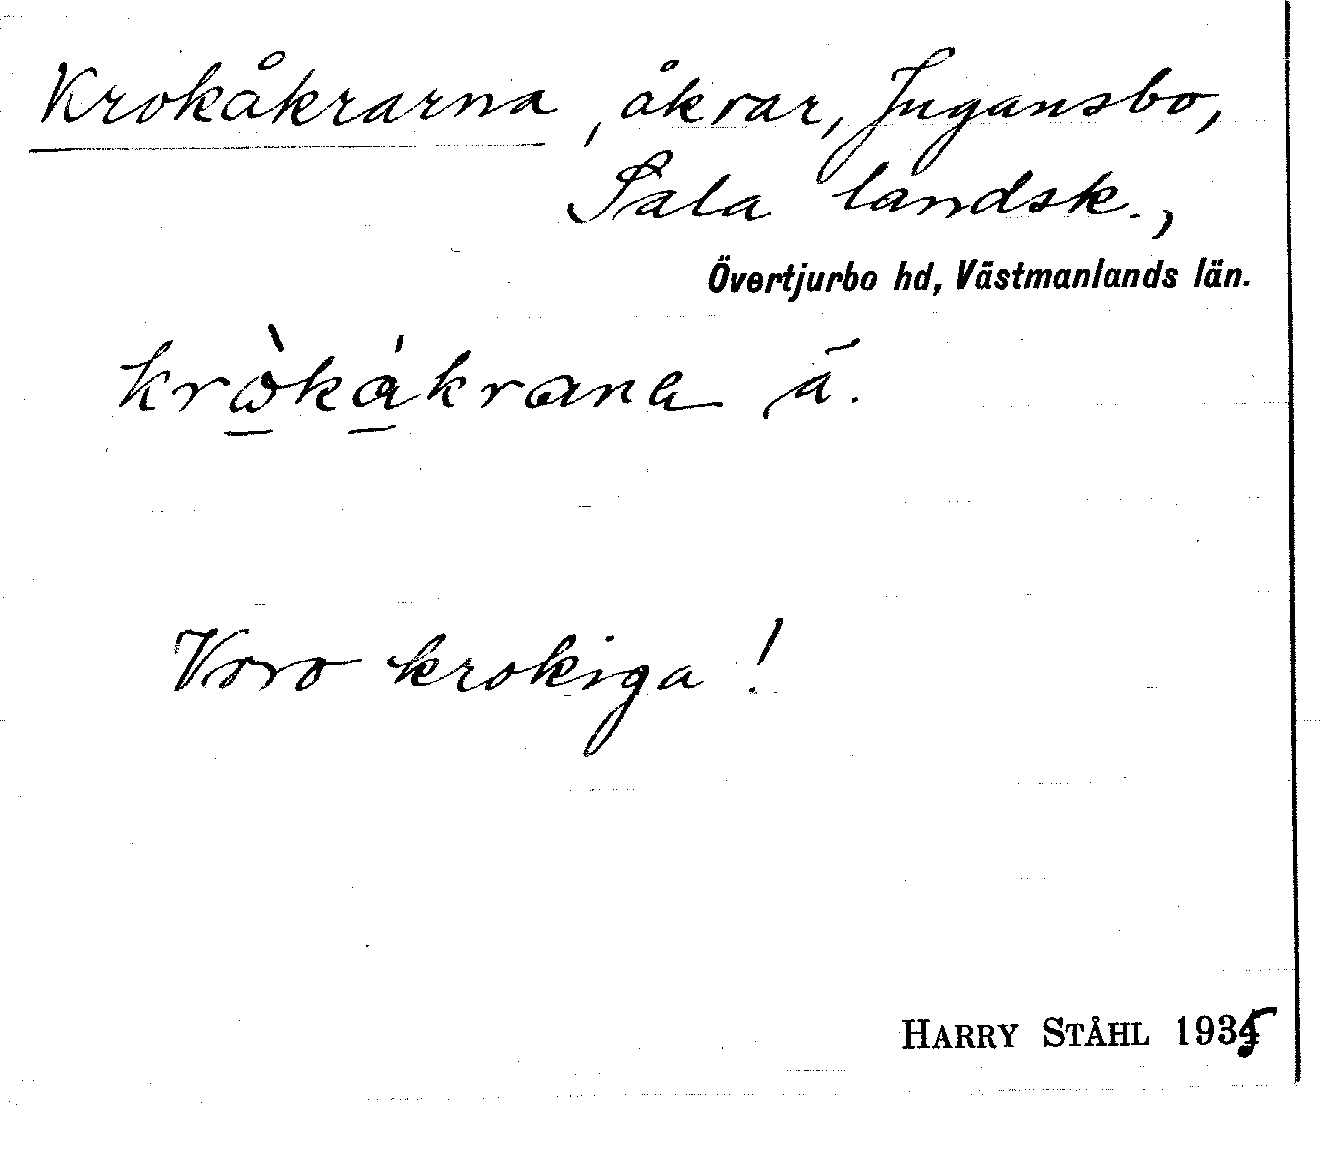 Krokåkrarna, åkrar, Jugansbo,
Sala landsk.,
Övertjurbo hd, Västmanlands län.
krò̱ká̱krana ä.
Voro krokiga!
HARRY STÅHL 1935